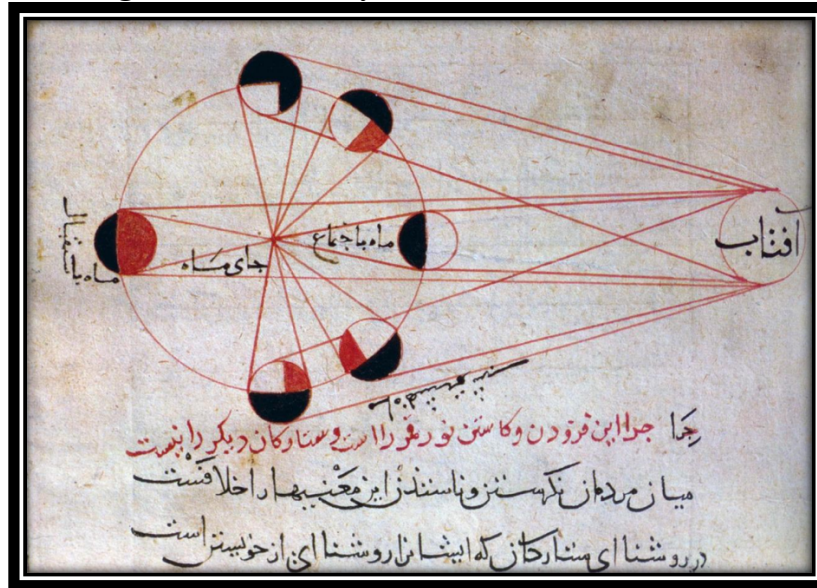 افتاب
ماه باجتماع
جای ماه
ماه باستقبال
جرا جرا این فزودن وکاستن نور قمر را است وستارکان دیکر را نیست
میان مردمان این معنیها را خلافست
در روشنا ای ستارکان که ایشانرا روشنا ای از خویشتن است